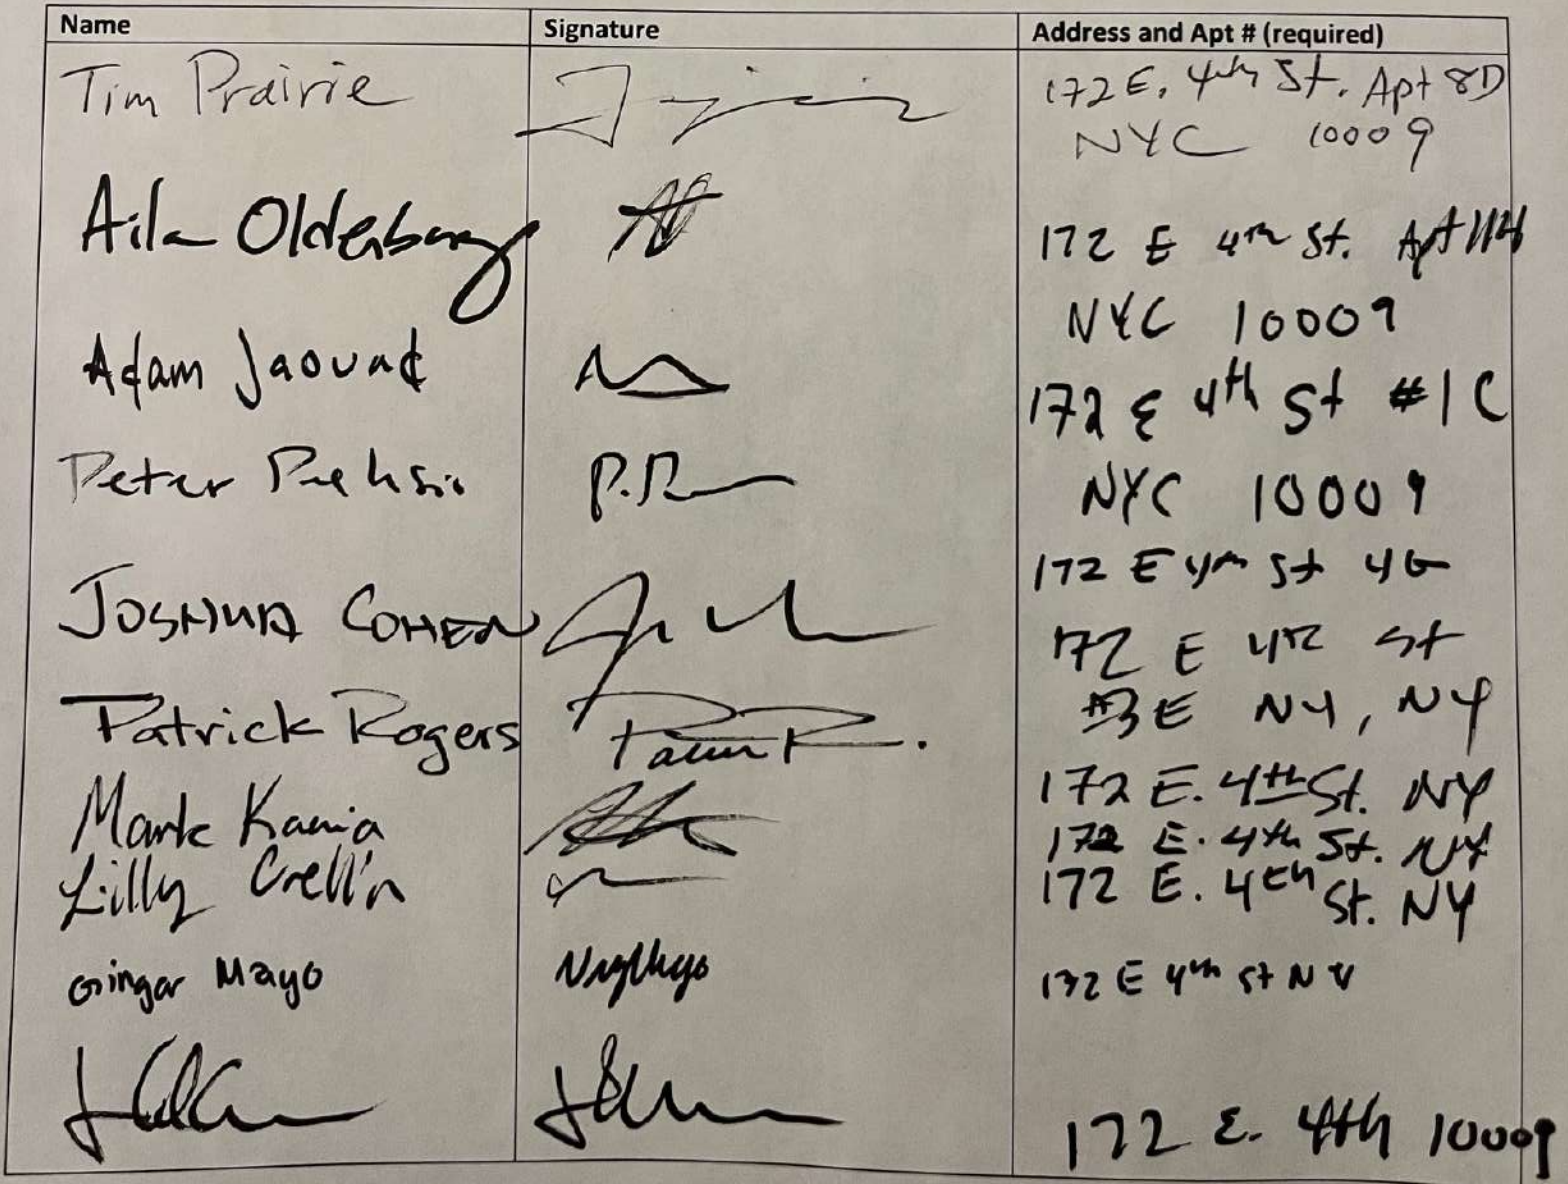 Name Signature Address and Apt # (required)
Tim Prairie 172 E. 4th St. Apt 8D
NYC 10009
Oldenburg 172 E 4th St. Apt
NYC 10009
Adam Jaouad
172 E 4th St #1C
Peter P.R
NYC 10009
172 E 4th St 4G
JOSHUA COHEN 172 E 4th St
#3E NY, NY
Patrick Rogers
172 E. 4th St. NY
Mark Kania 172 E. 4th St. NY
Lilly Crellin 172 E. 4th
St. NY
Gingar Mayo 172 E 4th St NY
172 E. 4th 10009